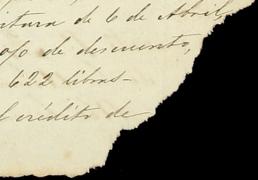 itura de 6 de Abril,
o/o de descuento,
622 libras-
l crédito de